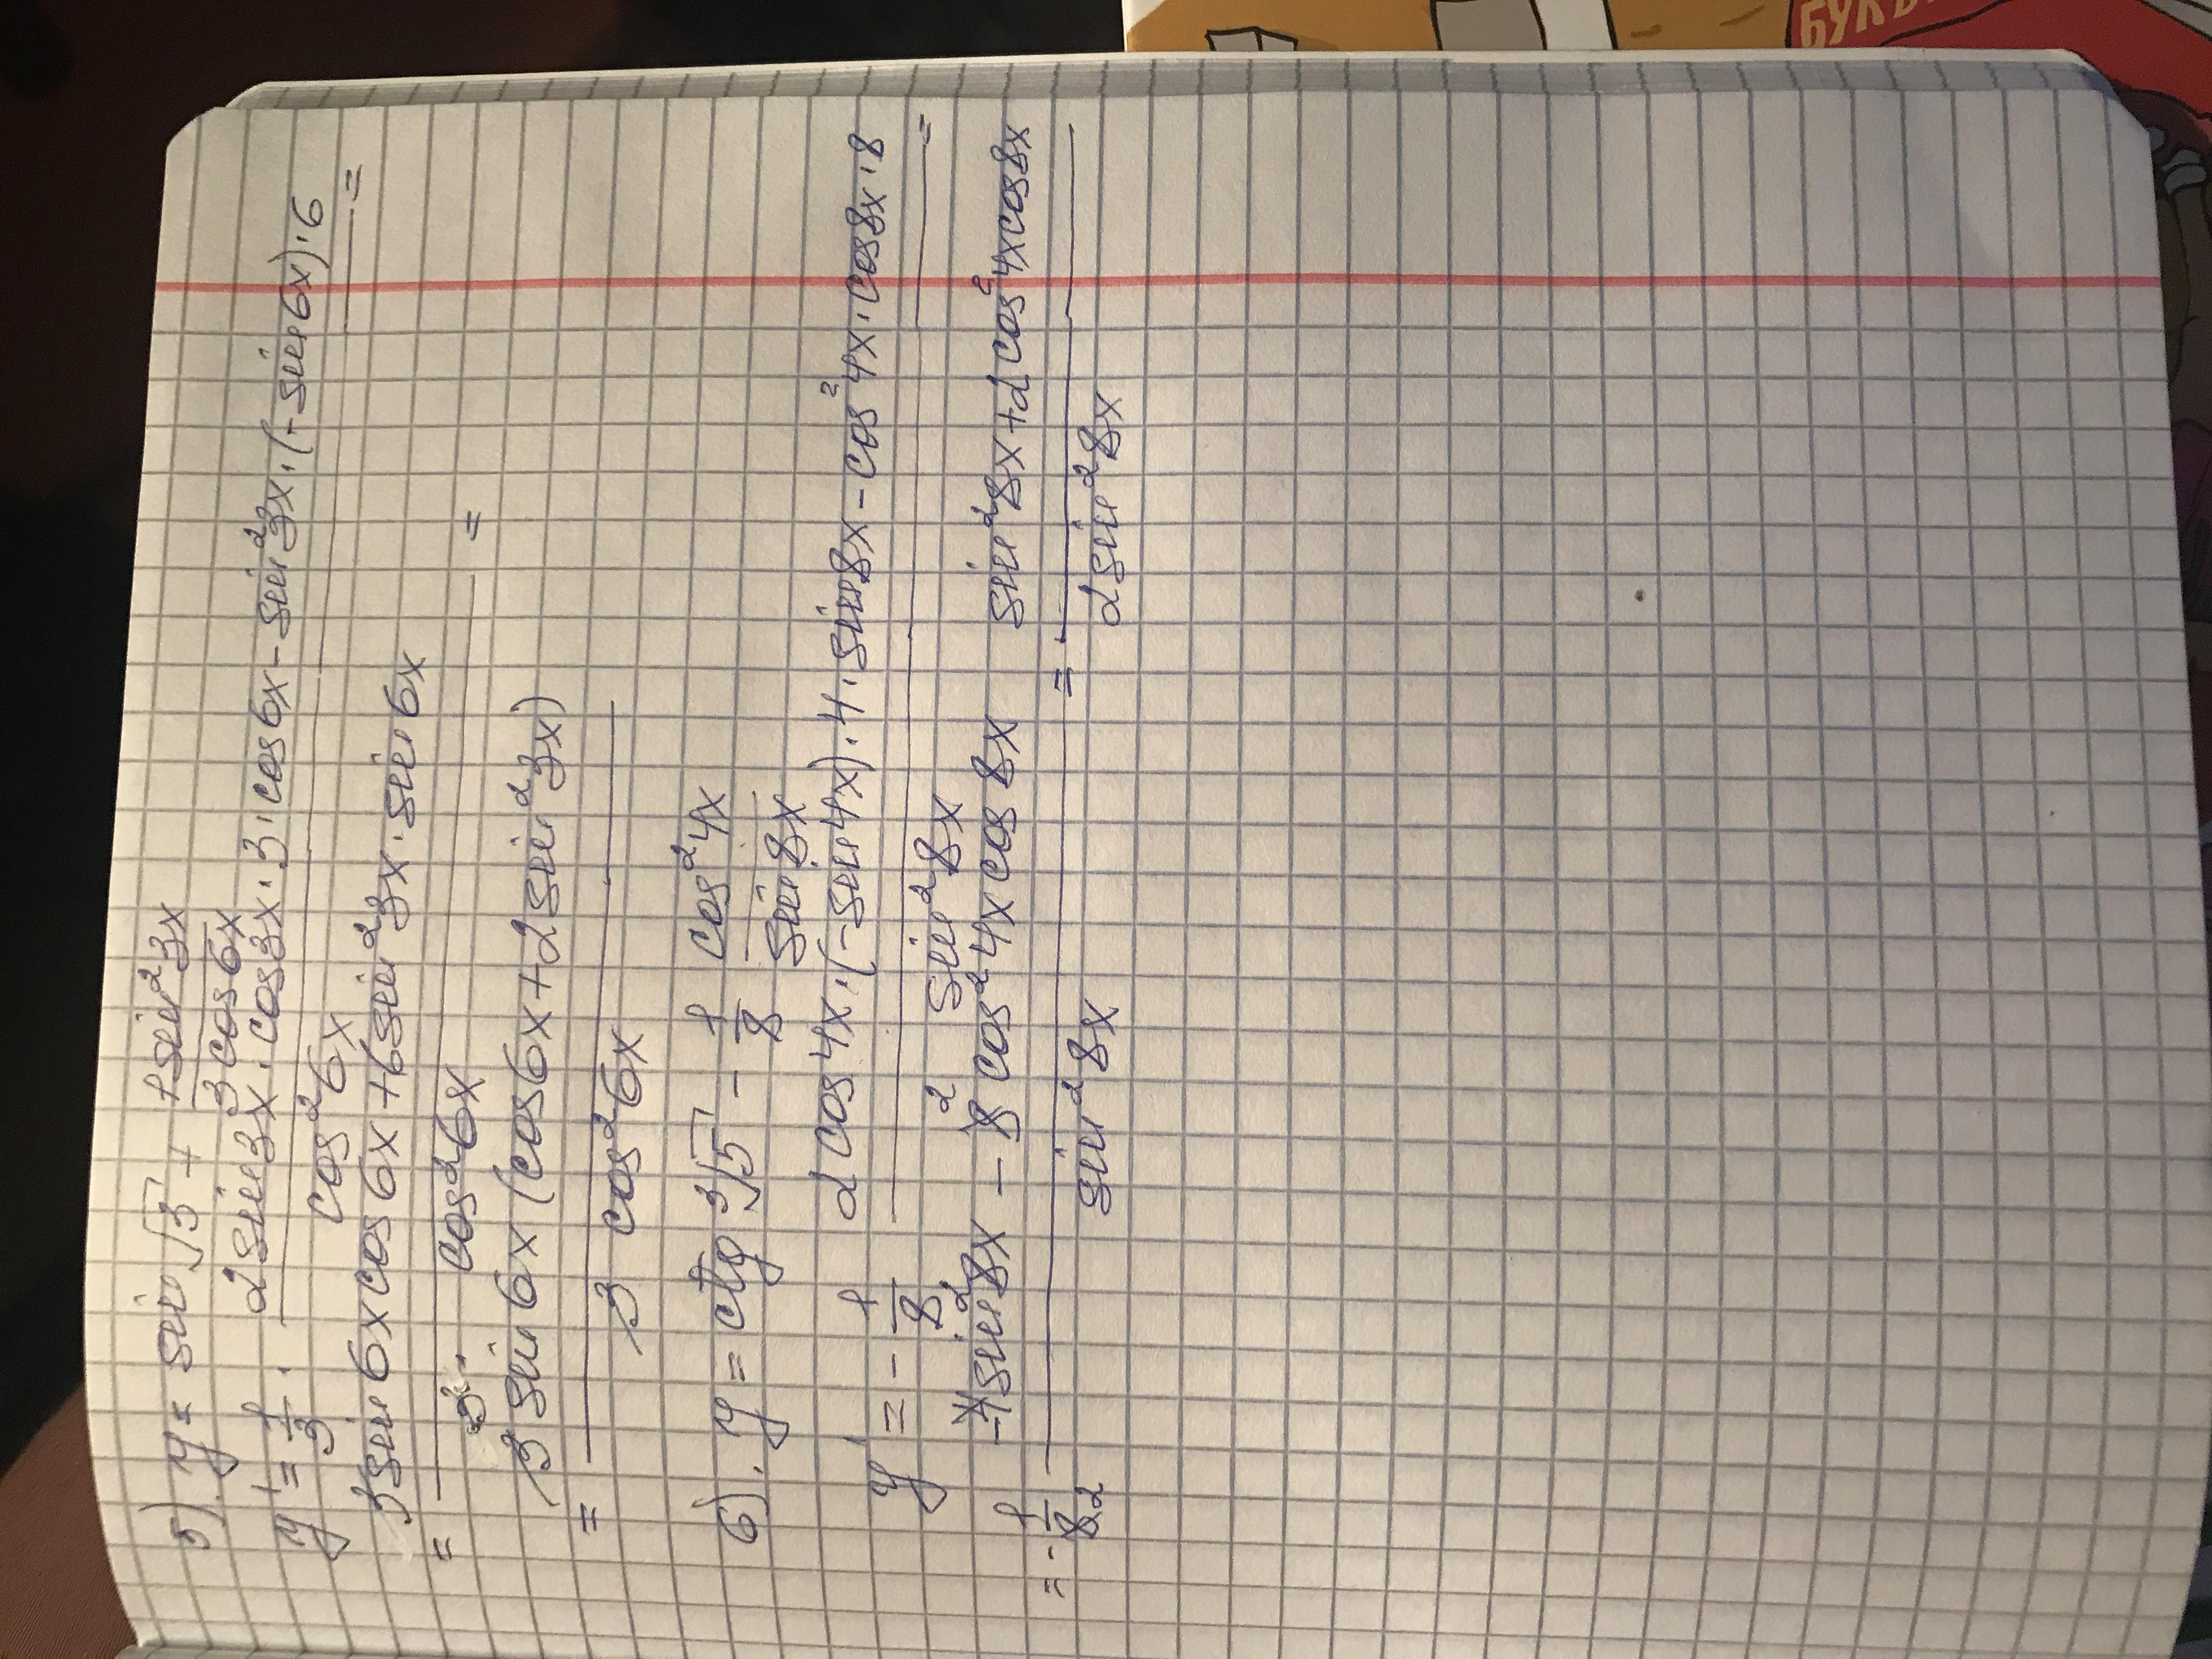 5). y = sin √3 + 1 sin²3x / 3 cos 6x
y' = 1/3 · 2 sin 3x · cos 3x · 3 · cos 6x - sin²3x · (- sin 6x) · 6 / cos²6x =
= 3 sin 6x cos 6x + 6 sin²3x · sin 6x / 3 · cos²6x =
= 3 sin 6x (cos 6x + 2 sin²3x) / 3 cos²6x
6). y = ctg ³√5 - 1/8 cos²4x / sin 8x
y' = - 1/8 · 2 cos 4x · (- sin 4x) · 4 · sin 8x - cos²4x · cos 8x · 8 / sin²8x =
= - 1/8 2 · -4 sin²8x - 8 2 cos²4x cos 8x / sin²8x = sin²8x + 2 cos²4x cos 8x / 2 sin²8x